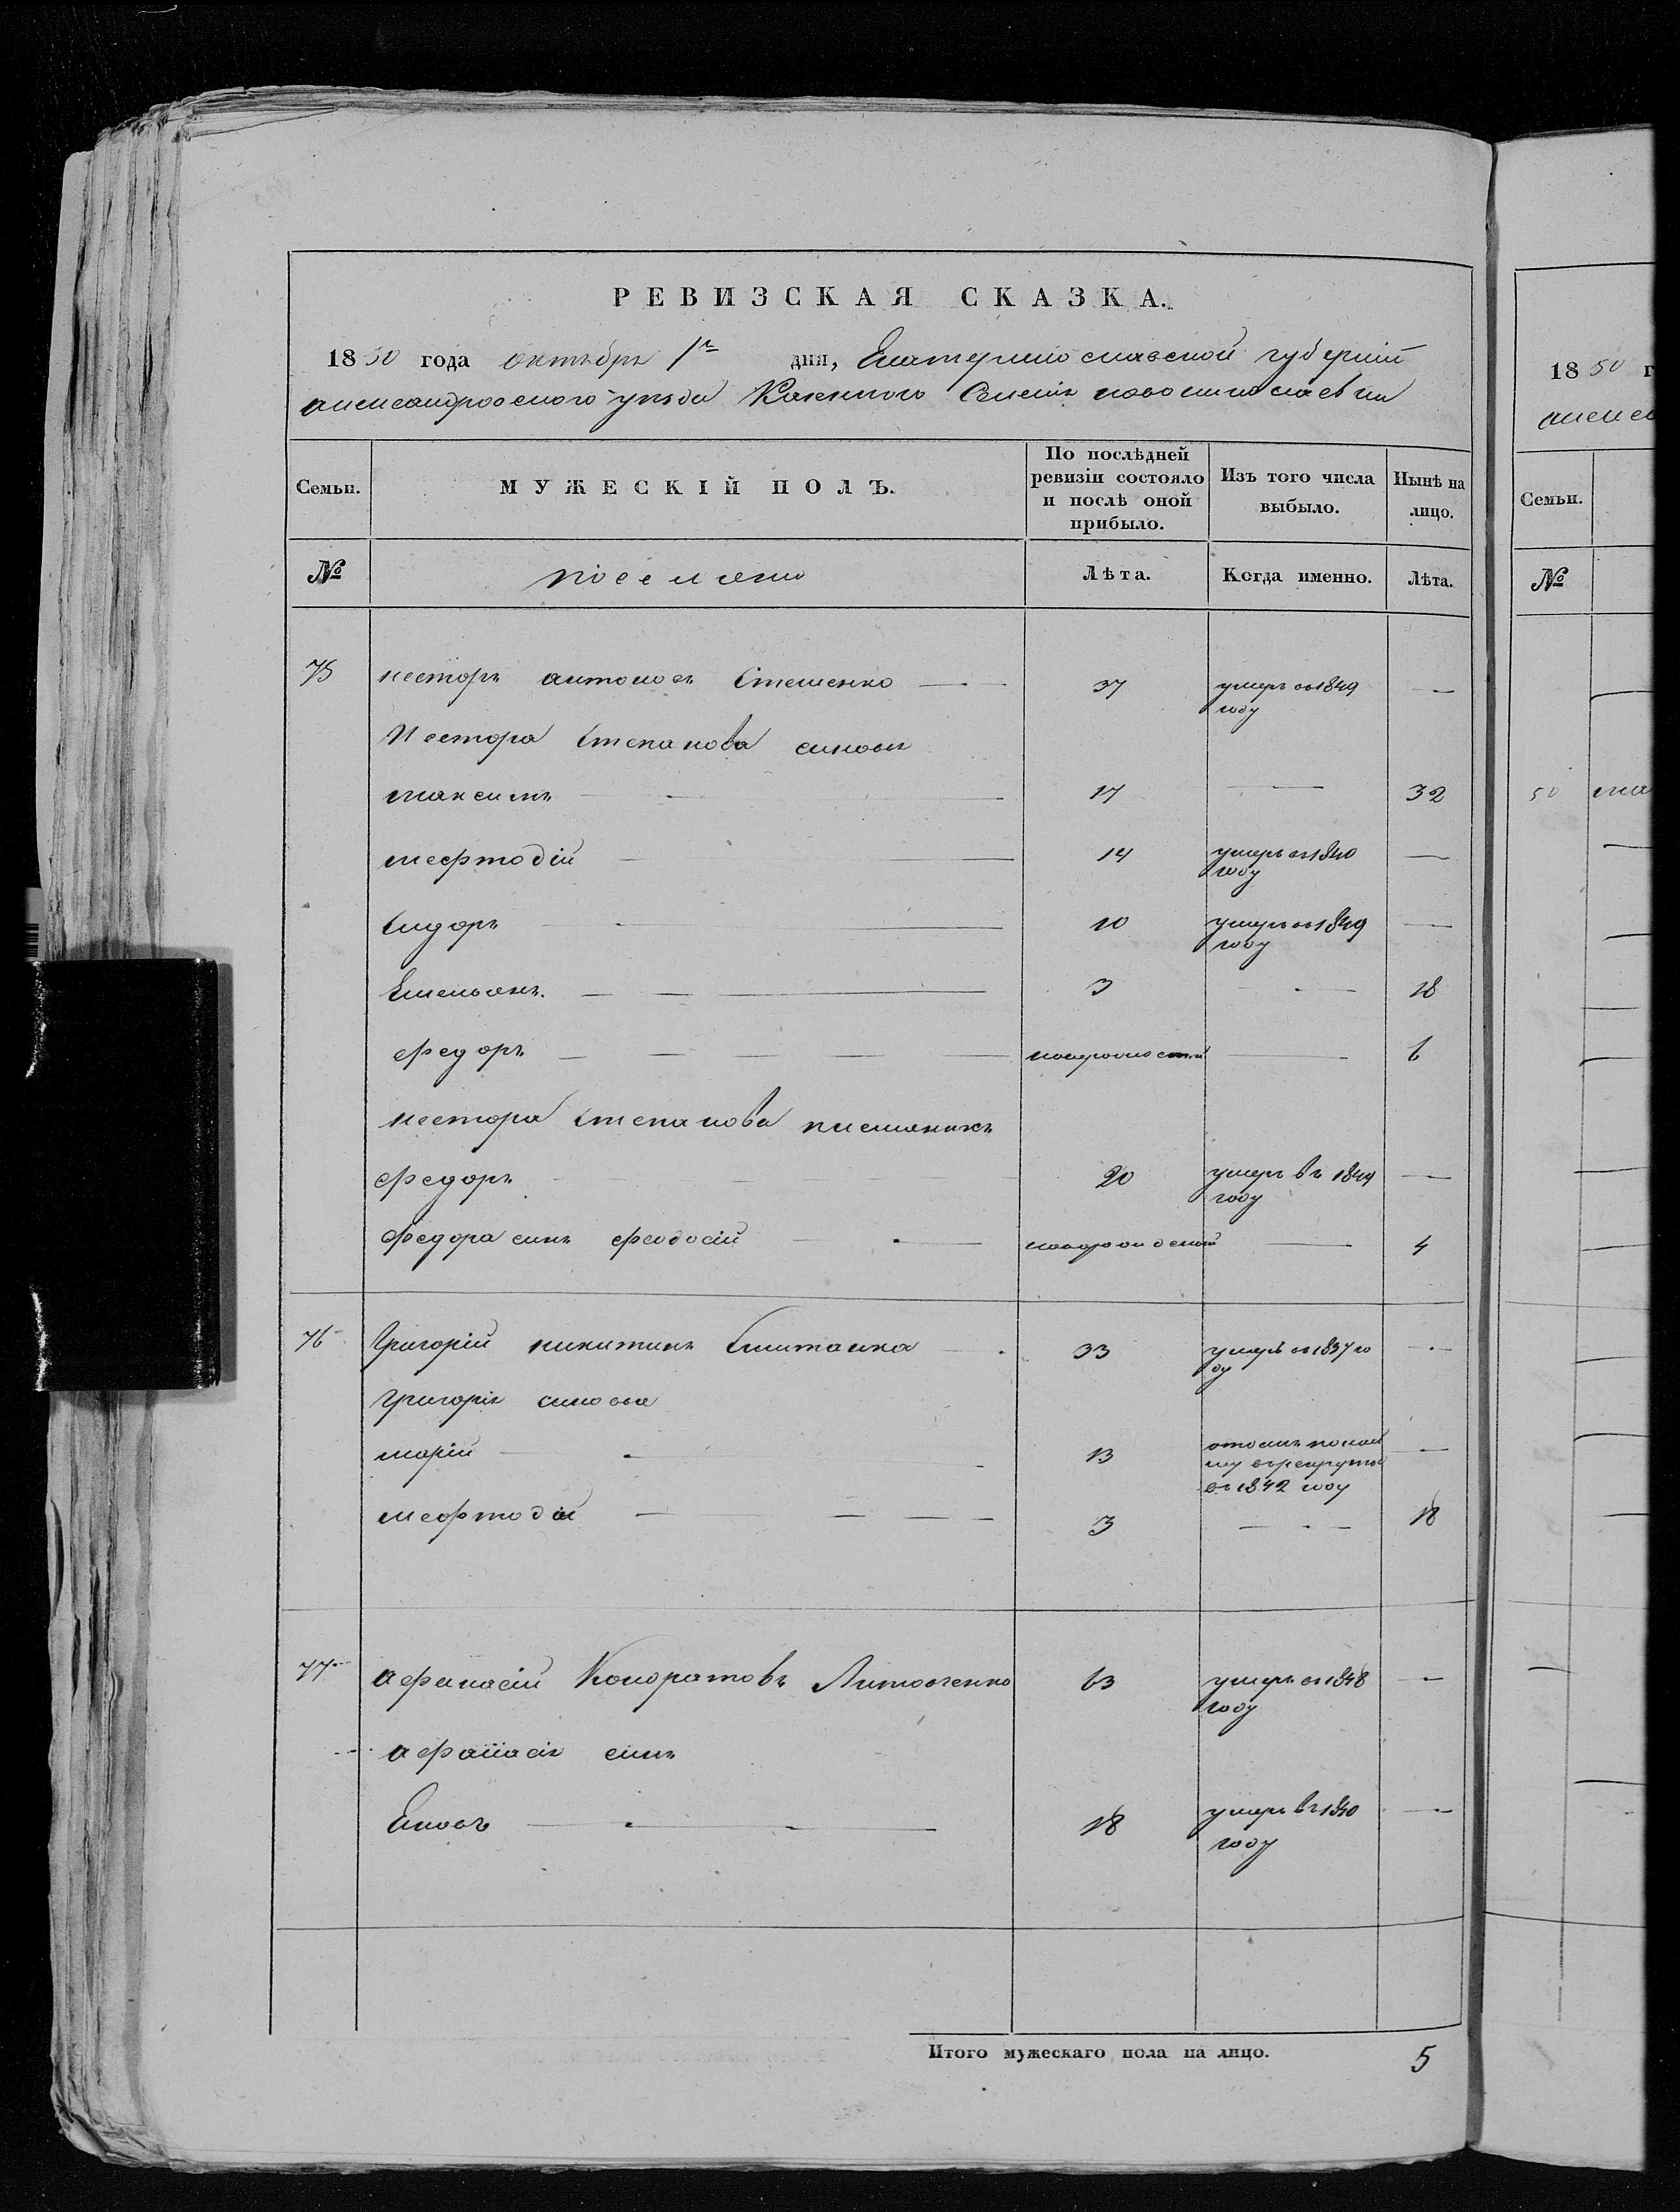 РЕВИЗСКАЯ СКАЗКА.
1850 года октября 1го дня, Екатеринославской губерніи
александровского уезда Казенного Селенія новониколаевки
Семьи. МУЖЕСКІЙ ПОЛЪ. По послѣдней ревизіи состояло и послѣ оной прибыло. Изъ того числа выбыло. Ныне на лицо.
№ Лѣта. Когда именно. Лѣта.
75 несторъ Стешенко 37 умеръ въ 1849 году —
Нестора Степанова сыновья
максимъ 17 — 32
мефтодій 14 умеръ въ 1840 году —
Сидоръ 10 умеръ въ 1849 году —
Емельянъ. 3 — 18
федоръ — 6
нестора Степанова племяникъ
федоръ 20 умеръ въ 1844 году —
федора сынъ феодосій новорожденый — 4
76 Григорій никитинъ 33 умеръ въ 1837 году —
Григорія сыновья
13 въ рекруты въ 1842 году —
мефтодій 3 — 18
77 афанасій Кондратовъ Литовченко 63 умеръ въ 1848 году —
афанасія сынъ
Яковъ 18 умеръ въ 1840 году —
Итого мужескаго пола на лицо. 5
1850 г
алексе
Семьи.
№
50 ма